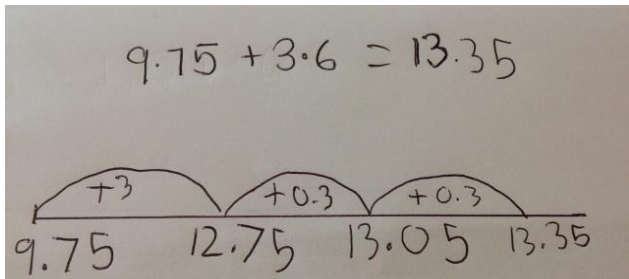 9.75 + 3.6 = 13.35
+3 +0.3 +0.3
9.75 12.75 13.05 13.35